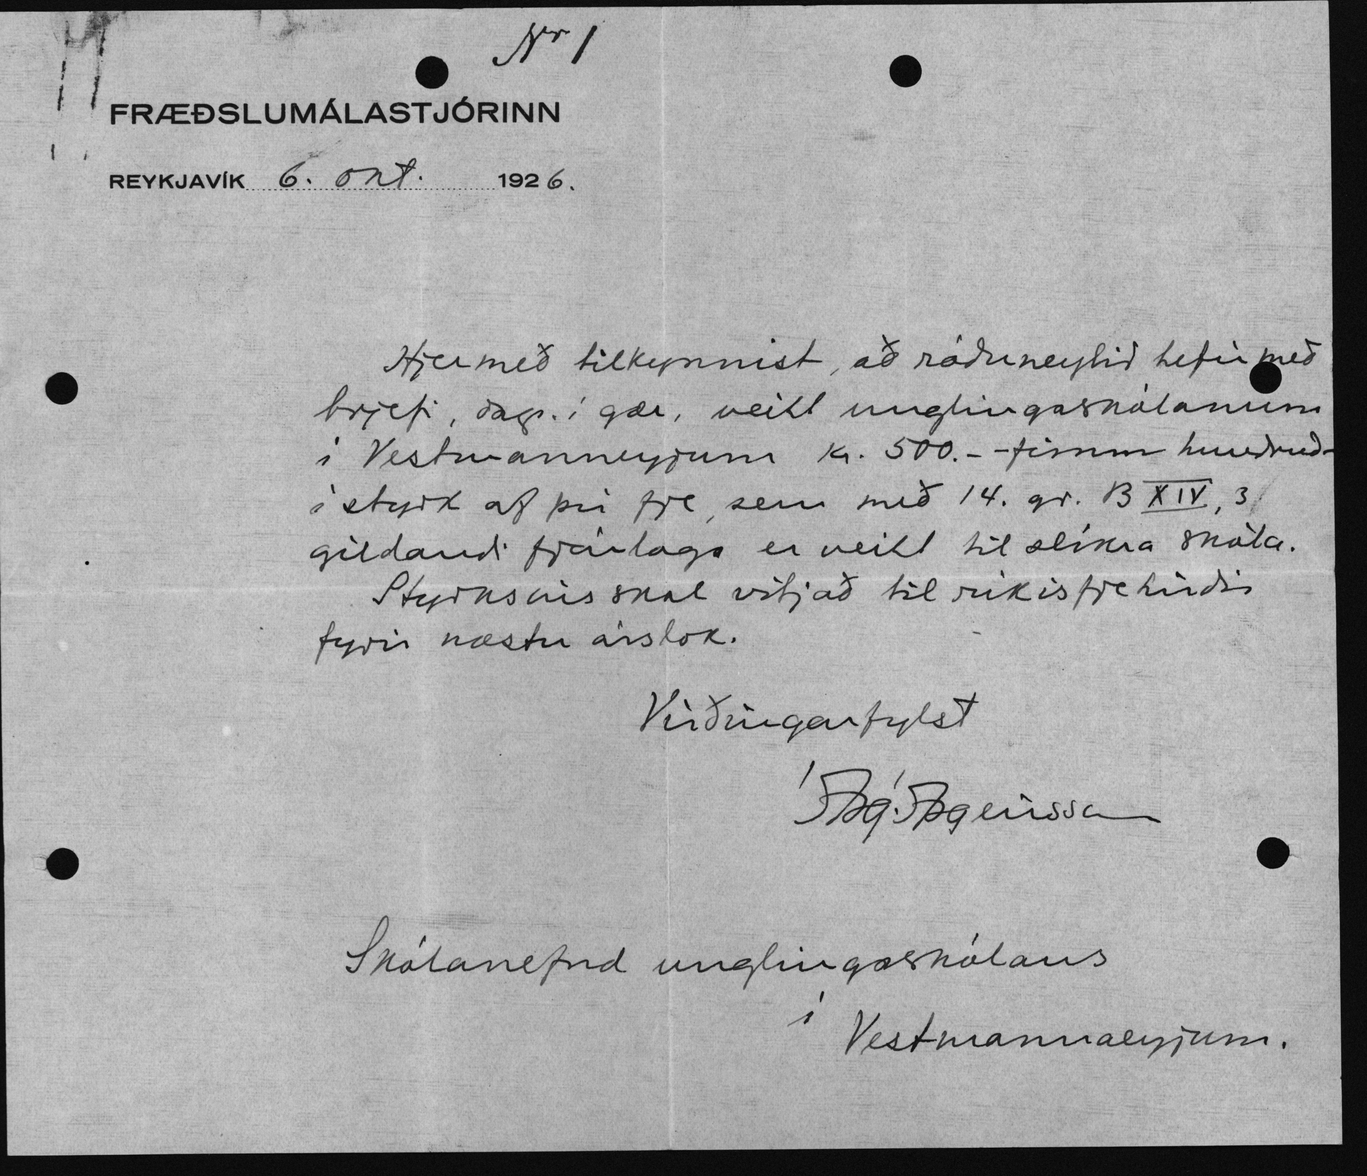 Nr 1
FRÆÐSLUMÁLASTJÓRINN
REYKJAVÍK 6. okt. 1926.
Hjermeð tilkynnist, að ráðuneytið hefir með
brjefi, dags. í gær, veitt unglingaskólanum
í Vestmanneyjum kr. 500.- -fimm hundruð-
í styrk af því fje, sem með 14. gr. B XIV, 3
gildandi fjárlaga er veitt til slíkra skóla.
Styrksins skal vitjað til ríkisfjehirðis
fyrir næstu árslok.
Virðingarfylst
Ásg. Ásgeirsson
Skólanefnd unglingaskólans
í
Vestmannaeyjum.